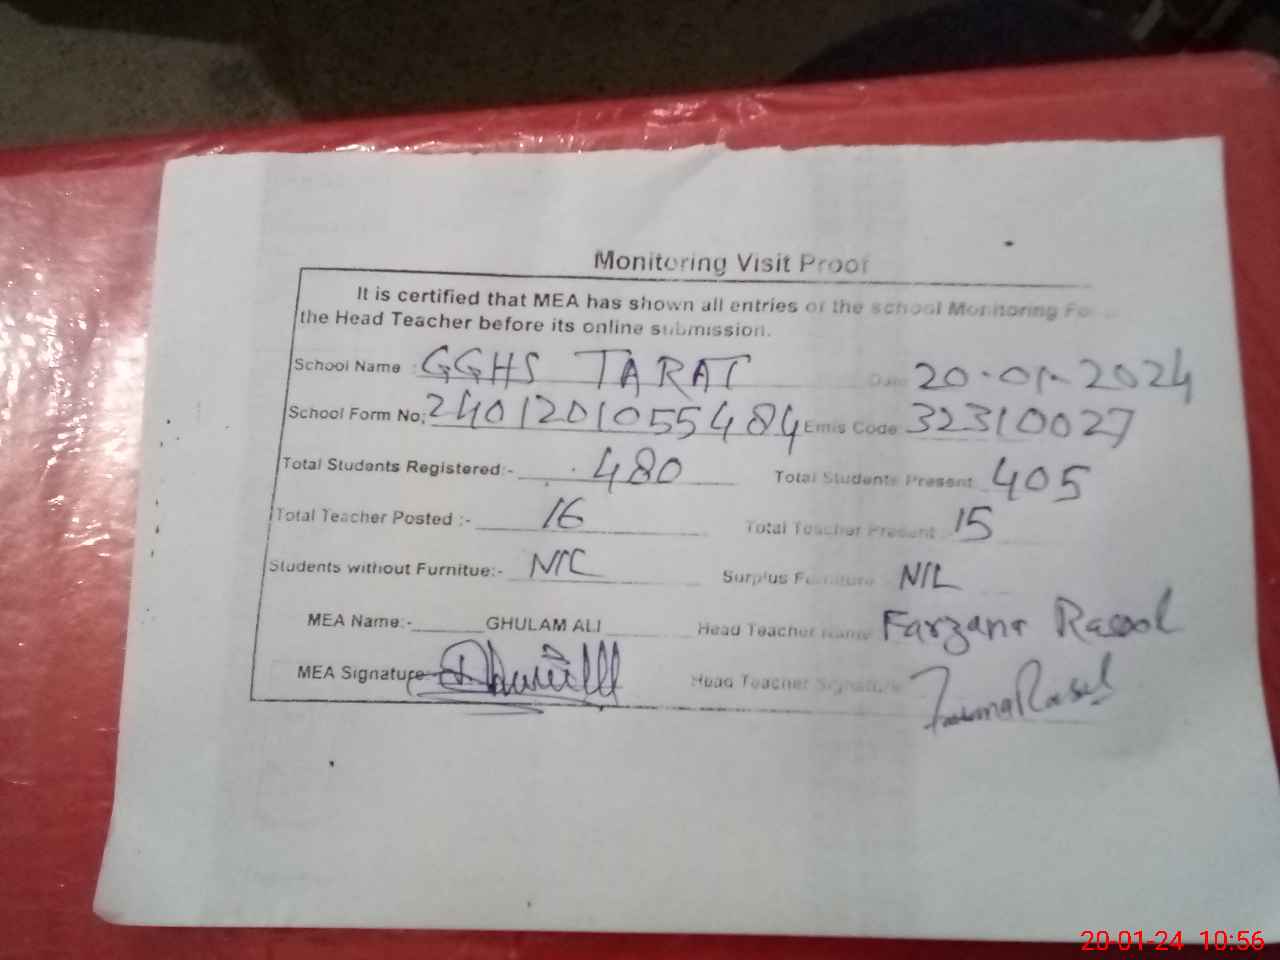 Monitoring Visit Proof
It is certified that MEA has shown all entries of the school Monitoring Fo
the Head Teacher before its online submission.
School Name : GGHS TARAT Date 20-01-2024
School Form No; 2401201055484 Emis Code 32310027
Total Students Registered:- 480 Total Students Present 405
Total Teacher Posted :- 16 Total Teacher Present 15
Students without Furnitue:- NIL Surplus Furniture NIL
MEA Name:- GHULAM ALI Head Teacher Name Farzana Rasool
MEA Signature Head Teacher Signature
20-01-24 10:56